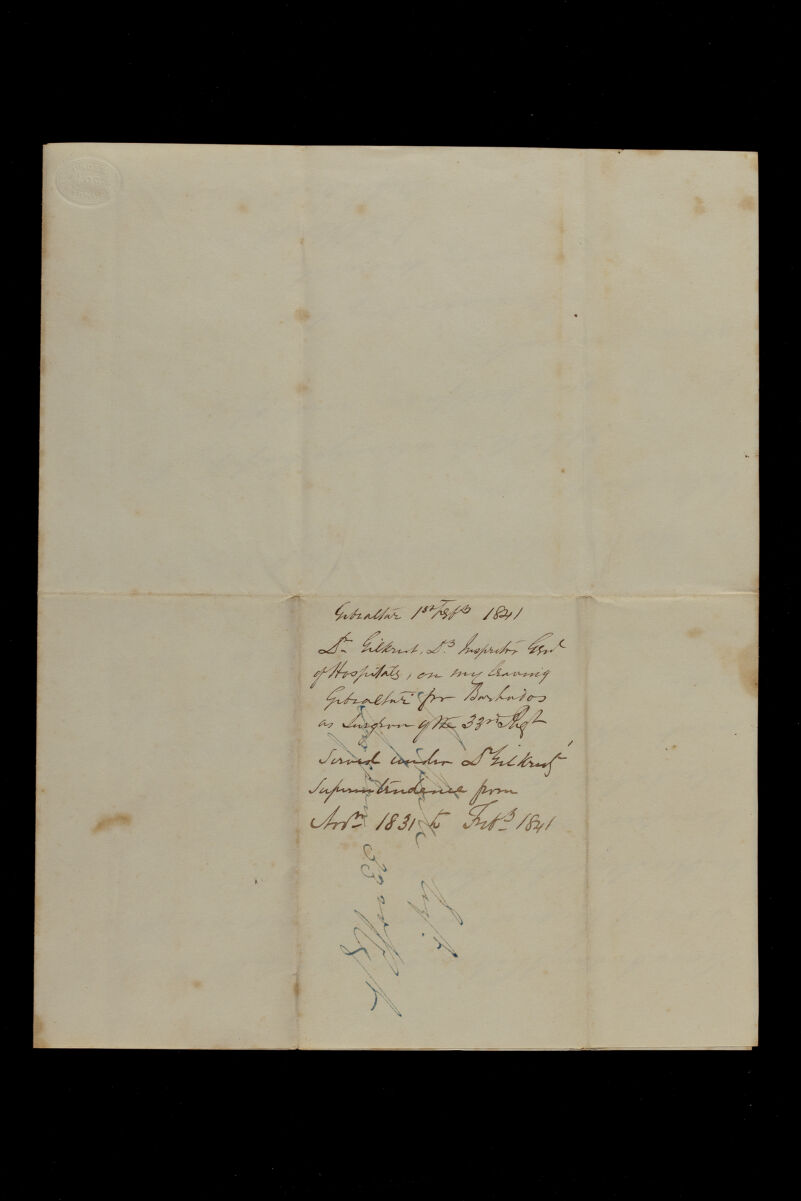 Gibraltar 1st Feby 1841
Dr. Gilkrist, Dy Inspector Genl
of Hospitals, on my leaving
Gibraltar for Barbados
as Surgeon of the 33rd Regt
Served under Dr Gilkrist'
Superintendence from
Novr 1831 to Feby 1841
Surgeon 33rd Regt